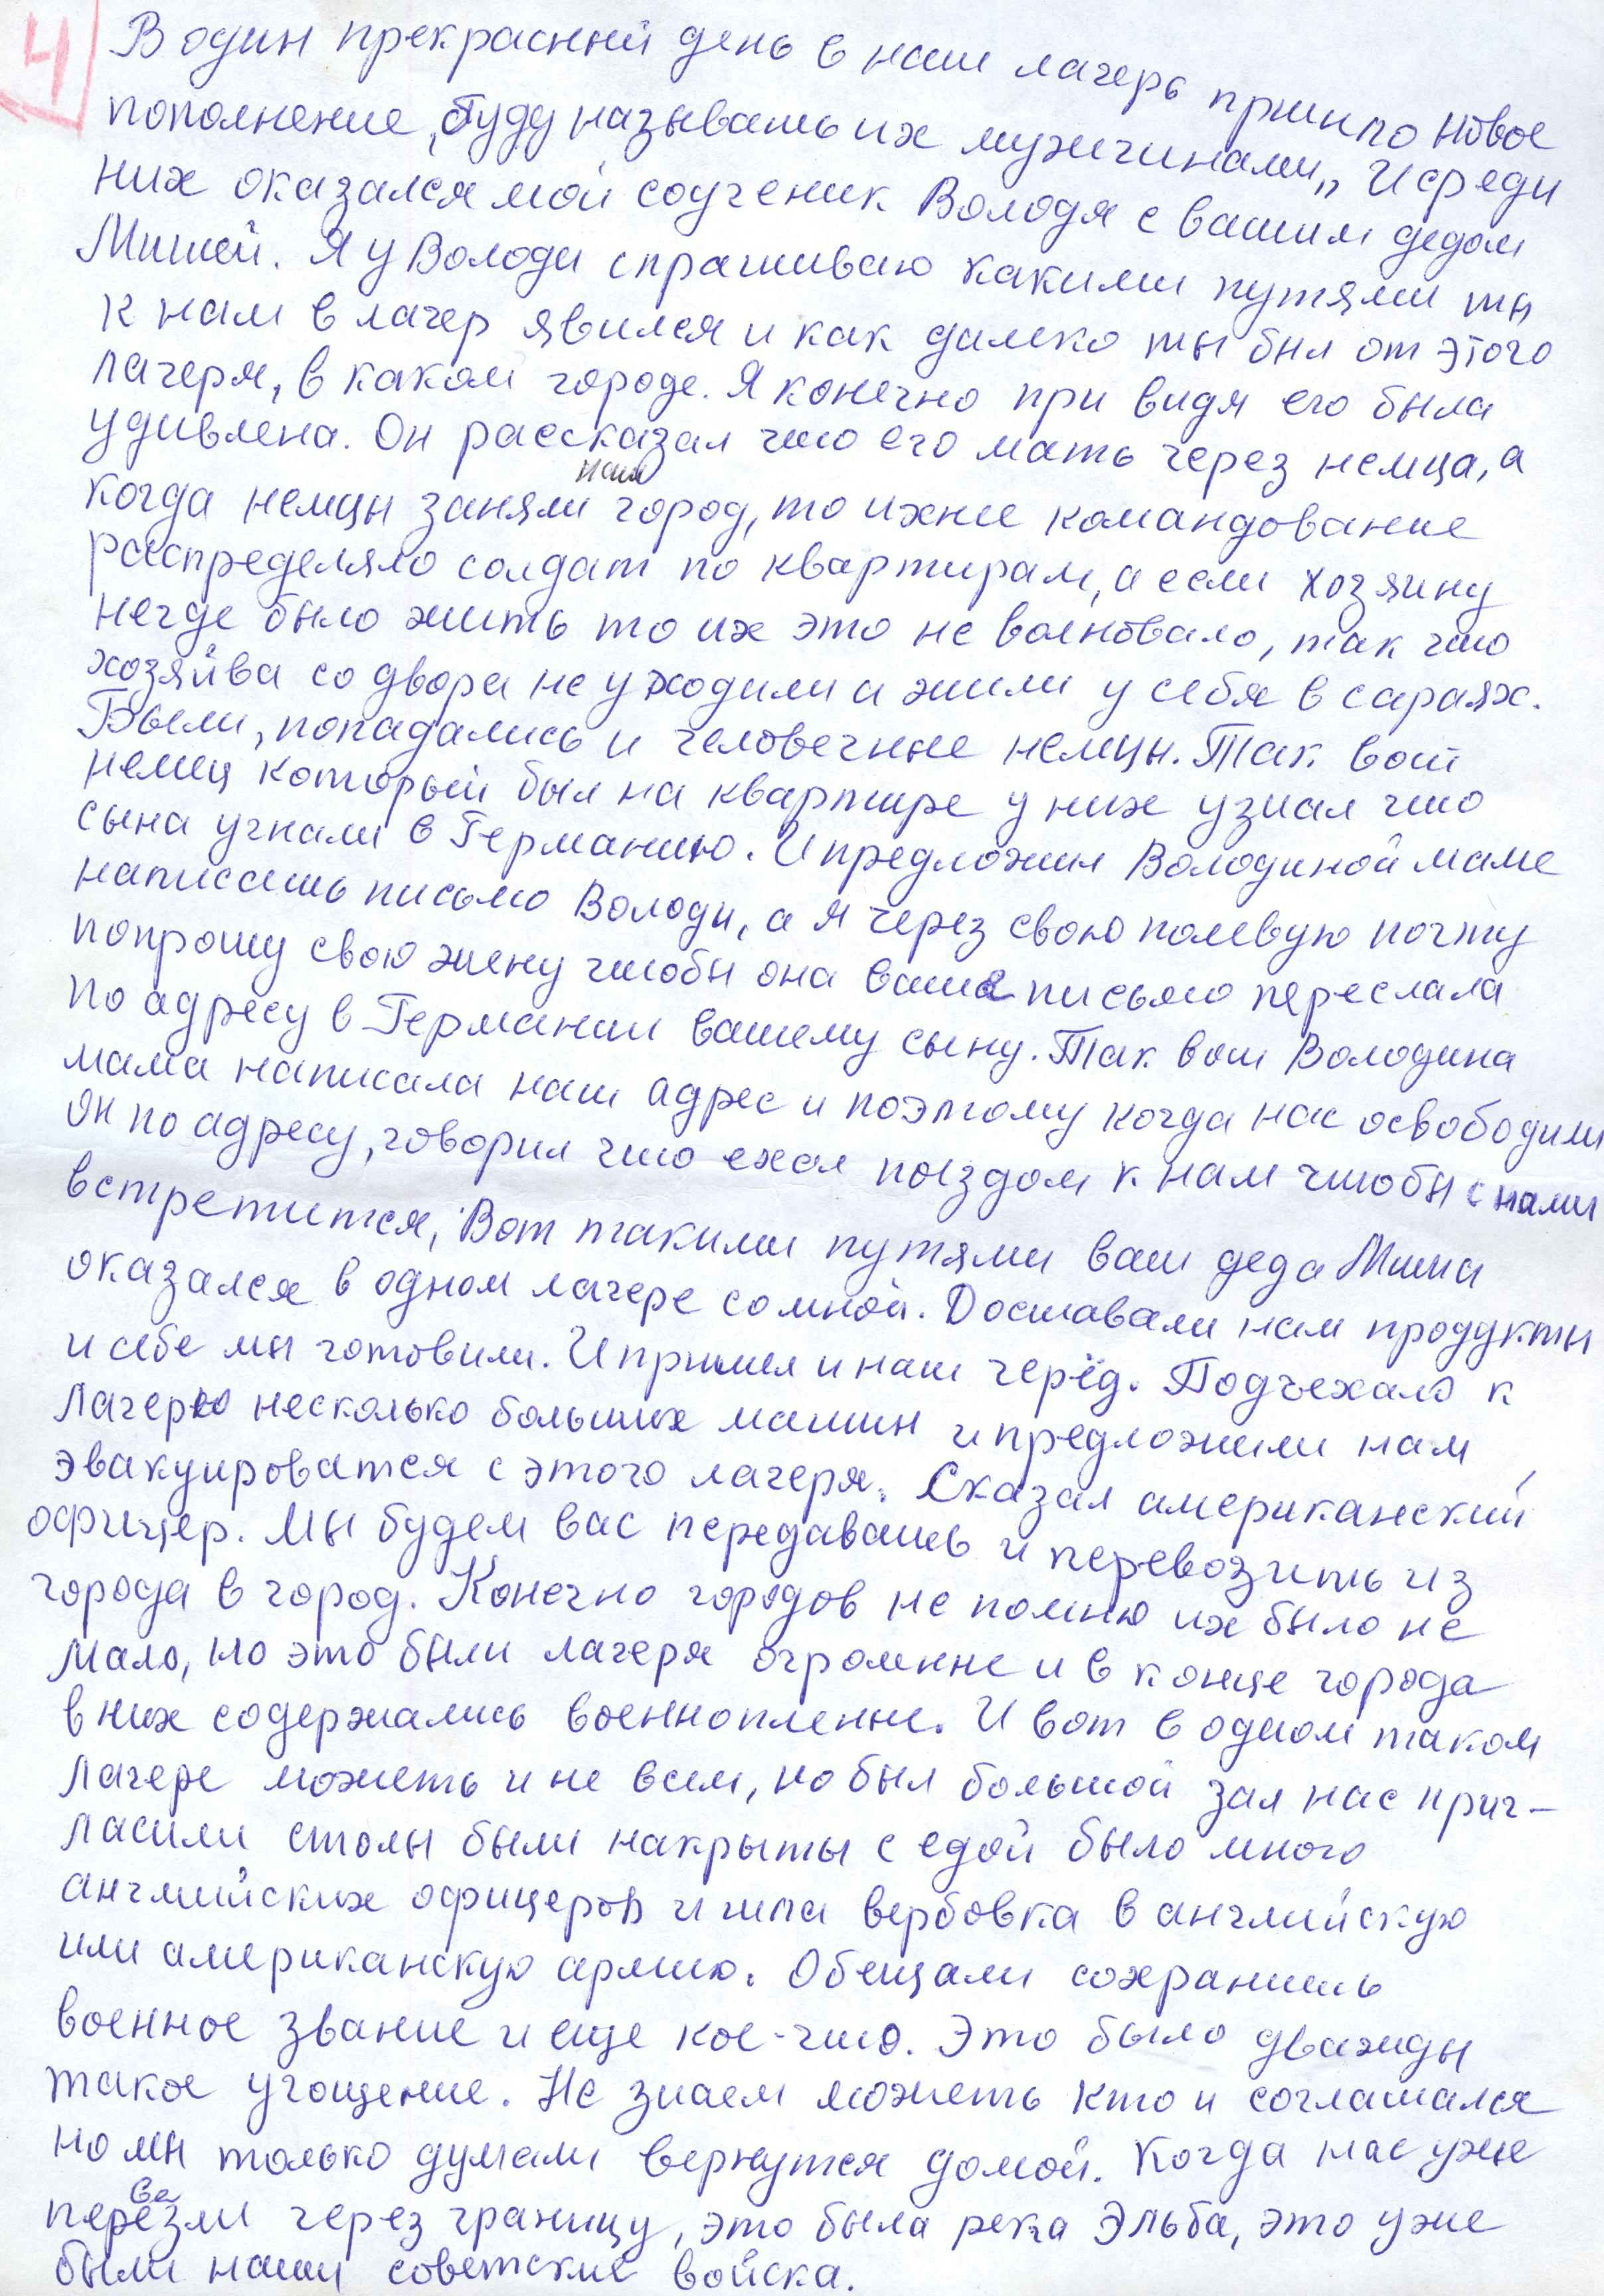 4
В один прекрасний день в наш лагерь пришло новое
пополнение, „буду называть их мужчинами„ И среди
них оказался мой соученик Володя с вашим дедом
Мишей. Я у Володи спрашиваю какими путями ты
к нам в лагер явился и как далеко ты был от этого
лагеря, в каком городе. Я конечно при видя его была
удивлена. Он рассказал что его мать через немца, а
когда немцы заняли наш город, то ихнее командование
распределяло солдат по квартирам, а если хозяину
негде было жить то их это не волновало, так что
хозяйва со двора не уходили а жили у себя в сараях.
Были, попадались и человечные немцы. Так вот
немец который был на квартире у них узнал что
сына угнали в Германию. И предложил Володиной маме
написать письмо Володи, а я через свою полевую почту
попрошу свою жену чтобы она ваше письмо переслала
по адресу в Германии вашему сыну. Так вот Володина
мама написала наш адрес и поэтому когда нас освободили
он по адресу, говорил что ехал поездом к нам чтобы с нами
встретится, Вот такими путями ваш деда Миша
оказался в одном лагере со мной. Доставали нам продукты
и себе мы готовили. И пришел и наш черёд. Подъехало к
лагерю несколько больших машин и предложили нам
эвакуироватся с этого лагеря. Сказал американский
офицер. Мы будем вас передавать и перевозить из
города в город. Конечно городов не помню их было не
мало, но это были лагеря огромные и в конце города
в них содержались военнопленые. И вот в одном таком
лагере можеть и не всем, но был большой зал нас приг-
ласили столы были накрыты с едой было много
английских офицеров и шла вербовка в английскую
или американскую армию. Обещали сохранить
военное звание и еще кое-что. Это было дважды
такое угощение. Не знаем можеть кто и соглашался
но мы только думали вернутся домой. Когда нас уже
перевезли через границу, это была река Эльба, это уже
были наши советские войска.